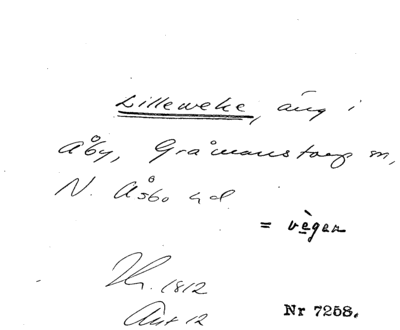 Lilleweke, äng i
Åby, Gråmanstorp sn,
N. Åsbo hd
= vègen
1812
Akt 12
Nr 7258.